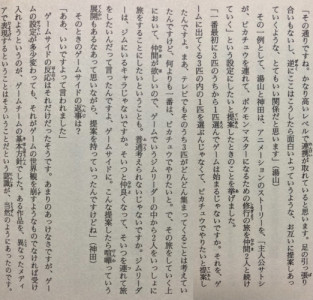 その通りですね。かなり高いレベルで連携が取れていると思います。足の引っ張り
合いもないし、逆にここはこうした面白いよっていうような、お互いに出しあっ
ていくような、とてもいい関係だと思います」（湯山）
その一例として、湯山と神田は、アニメーションのストーリーを、「主人公サトシ
が、ピカチュウを連れて、ポケモンマスターになるための修行の旅を仲間2人と続け
ていく」という設定にしたいと提案したときのことを挙げました。
「一番最初に3匹のうちから1匹選んでゲームは始まるじゃないですか。それを、ゲ
ームに出てくる3匹の内の1匹を選ぶんじゃなくて、ピカチュウでやりたいと提案し
たんですよ。まあ、テレビでもそのうち3匹がどんどん集まってくることは考えてい
たんですけど、何よりも一番は、ピカチュウでやりたいと。で、その旅をしていく上
において、仲間が欲しいので、ゲームでいうジムリーダーの中から2人をいっしょに
旅をすることにしたいということも、普通考えられないじゃないですか。ジムリーダ
ーは、ゲームにいるキャラじゃないですか。そいつと仲良くなって、そいつを連れて旅
をしたいんだって言ったんですよ。ゲームサイドに。こんな提案したら喧嘩っていう
展開もあるなあって思いながら、提案を持っていったんですけどね」（神田）
そのときのゲームサイドの返事は？
「ああ、いいですよって言われました」
ゲームサイドの反応はそれだけだったそうです。あまりのあっけなさですが、ゲー
ムの設定が多少変わっても、それがゲームの世界観を崩すようなものでなければ受け
入れようというのが、ゲームチームの基本方針でした。ある作品を、異なったメディ
アで表現するということはそういうことだという認識が、当然のようにあったのです。